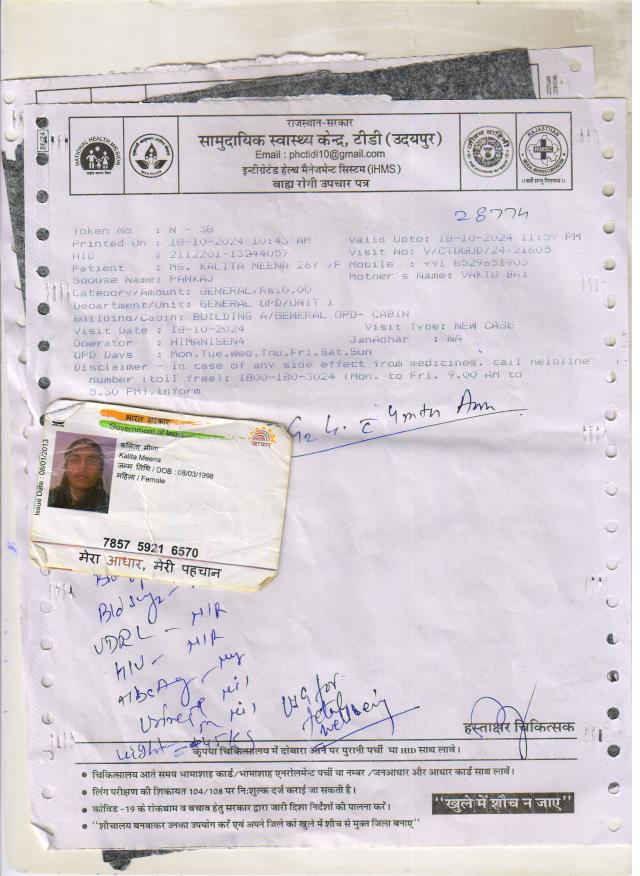 राजस्थान-सरकार
सामुदायिक स्वास्थ्य केन्द्र, टीडी (उदयपुर)
Email : phctidi10@gmail.com
इन्टीग्रेटेड हेल्थ मैनेजमेन्ट सिस्टम (iHMS)
बाह्य रोगी उपचार पत्र
NATIONAL HEALTH MISSION
28774
Token No : N - 38
Printed On : 18-10-2024 10:43 AM Valid Upto: 18-10-2024 11:59 PM
HID : 2112201-13244057 Visit No: V/CTDGUD/24721605
Patient : MS. KALITA MEENA 26Y /F Mobile : +91 6529651903
Spouse Name: PANKAJ Mother's Name: VAKTU BAI
Category/Amount: GENERAL/Rs.0.00
Department/Unit: GENERAL OPD/UNIT 1
Building/Cabin: BUILDING A/GENERAL OPD- CABIN
Visit Date : 18-10-2024 Visit Type: NEW CASE
Operator : HIMANISEN4 JanAdhar : NA
OPD Days : Mon.Tue.Wed.Thu.Fri.Sat.Sun
Disclaimer - in case of any side effect from medicines. call helpline
number (toll free): 1800-180-3024 (Mon. to Fri. 9.00 AM to
5.30 PM).inform
भारत सरकार
Government of India
आधार
Issue Date : 06/01/2013
कलिता मीणा
Kalita Meena
जन्म तिथि / DOB : 08/03/1998
महिला / Female
7857 5921 6570
मेरा आधार, मेरी पहचान
VDRL - N/R
HIV - N/R
HBsAg -
weight = 45 KG
USG for
fetal
wellbeing
हस्ताक्षर चिकित्सक
कृपया चिकित्सालय में दोबारा आने पर पुरानी पर्ची या HID साथ लावें।
चिकित्सालय आते समय भामाशाह कार्ड/भामाशाह एनरोलमेन्ट पर्ची या नम्बर /जनआधार और आधार कार्ड साथ लावें।
लिंग परीक्षण की शिकायत 104/108 पर नि:शुल्क दर्ज कराई जा सकती है।
कोविड -19 के रोकथाम व बचाव हेतु सरकार द्वारा जारी दिशा निर्देशों की पालना करें।
"खुले में शौच न जाए"
"शौचालय बनवाकर उनका उपयोग करें एवं अपने जिले को खुले में शौच से मुक्त जिला बनाए"